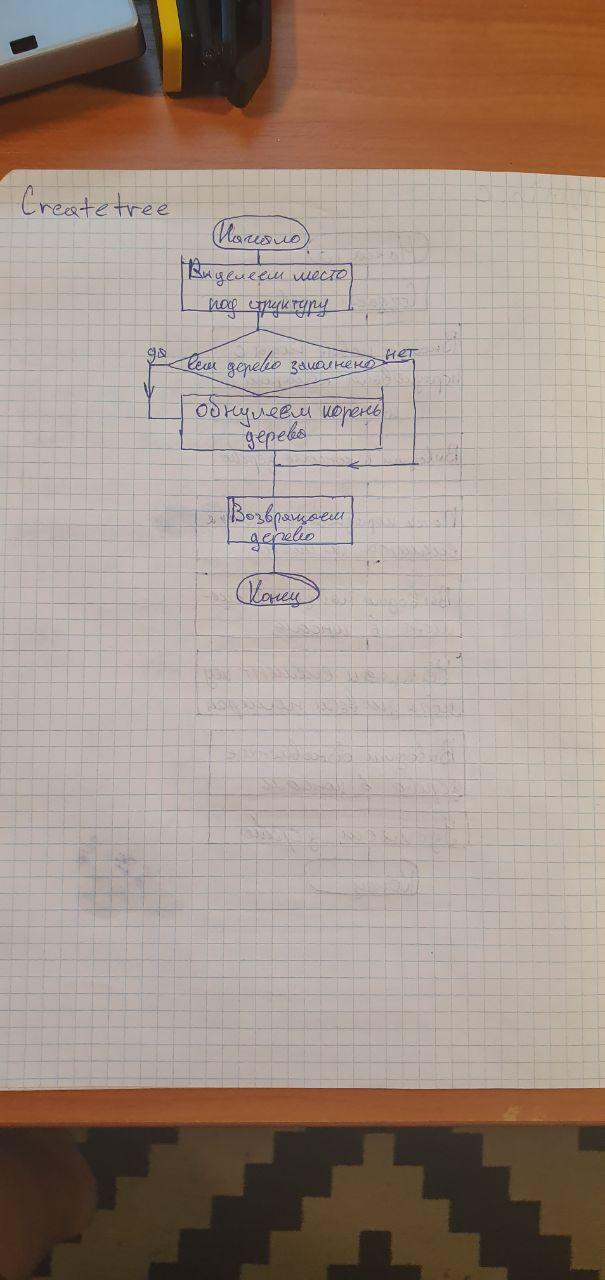 Createtree
Начало
Выделеем место
под структуру
да
нет
дерево заполнено
обнулеем корень
дерева
Возвращаем
дерево
Конец